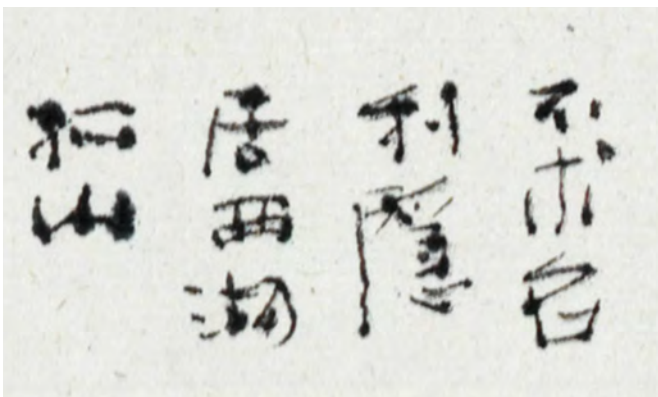 不求名
利隱
居西湖
孤山